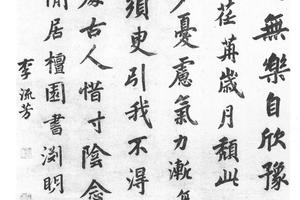 無樂自欣豫
荏苒歲月頹此
憂慮氣力漸
須臾引我不得
處古人惜寸陰念
閒居檀園書淵明
李流芳